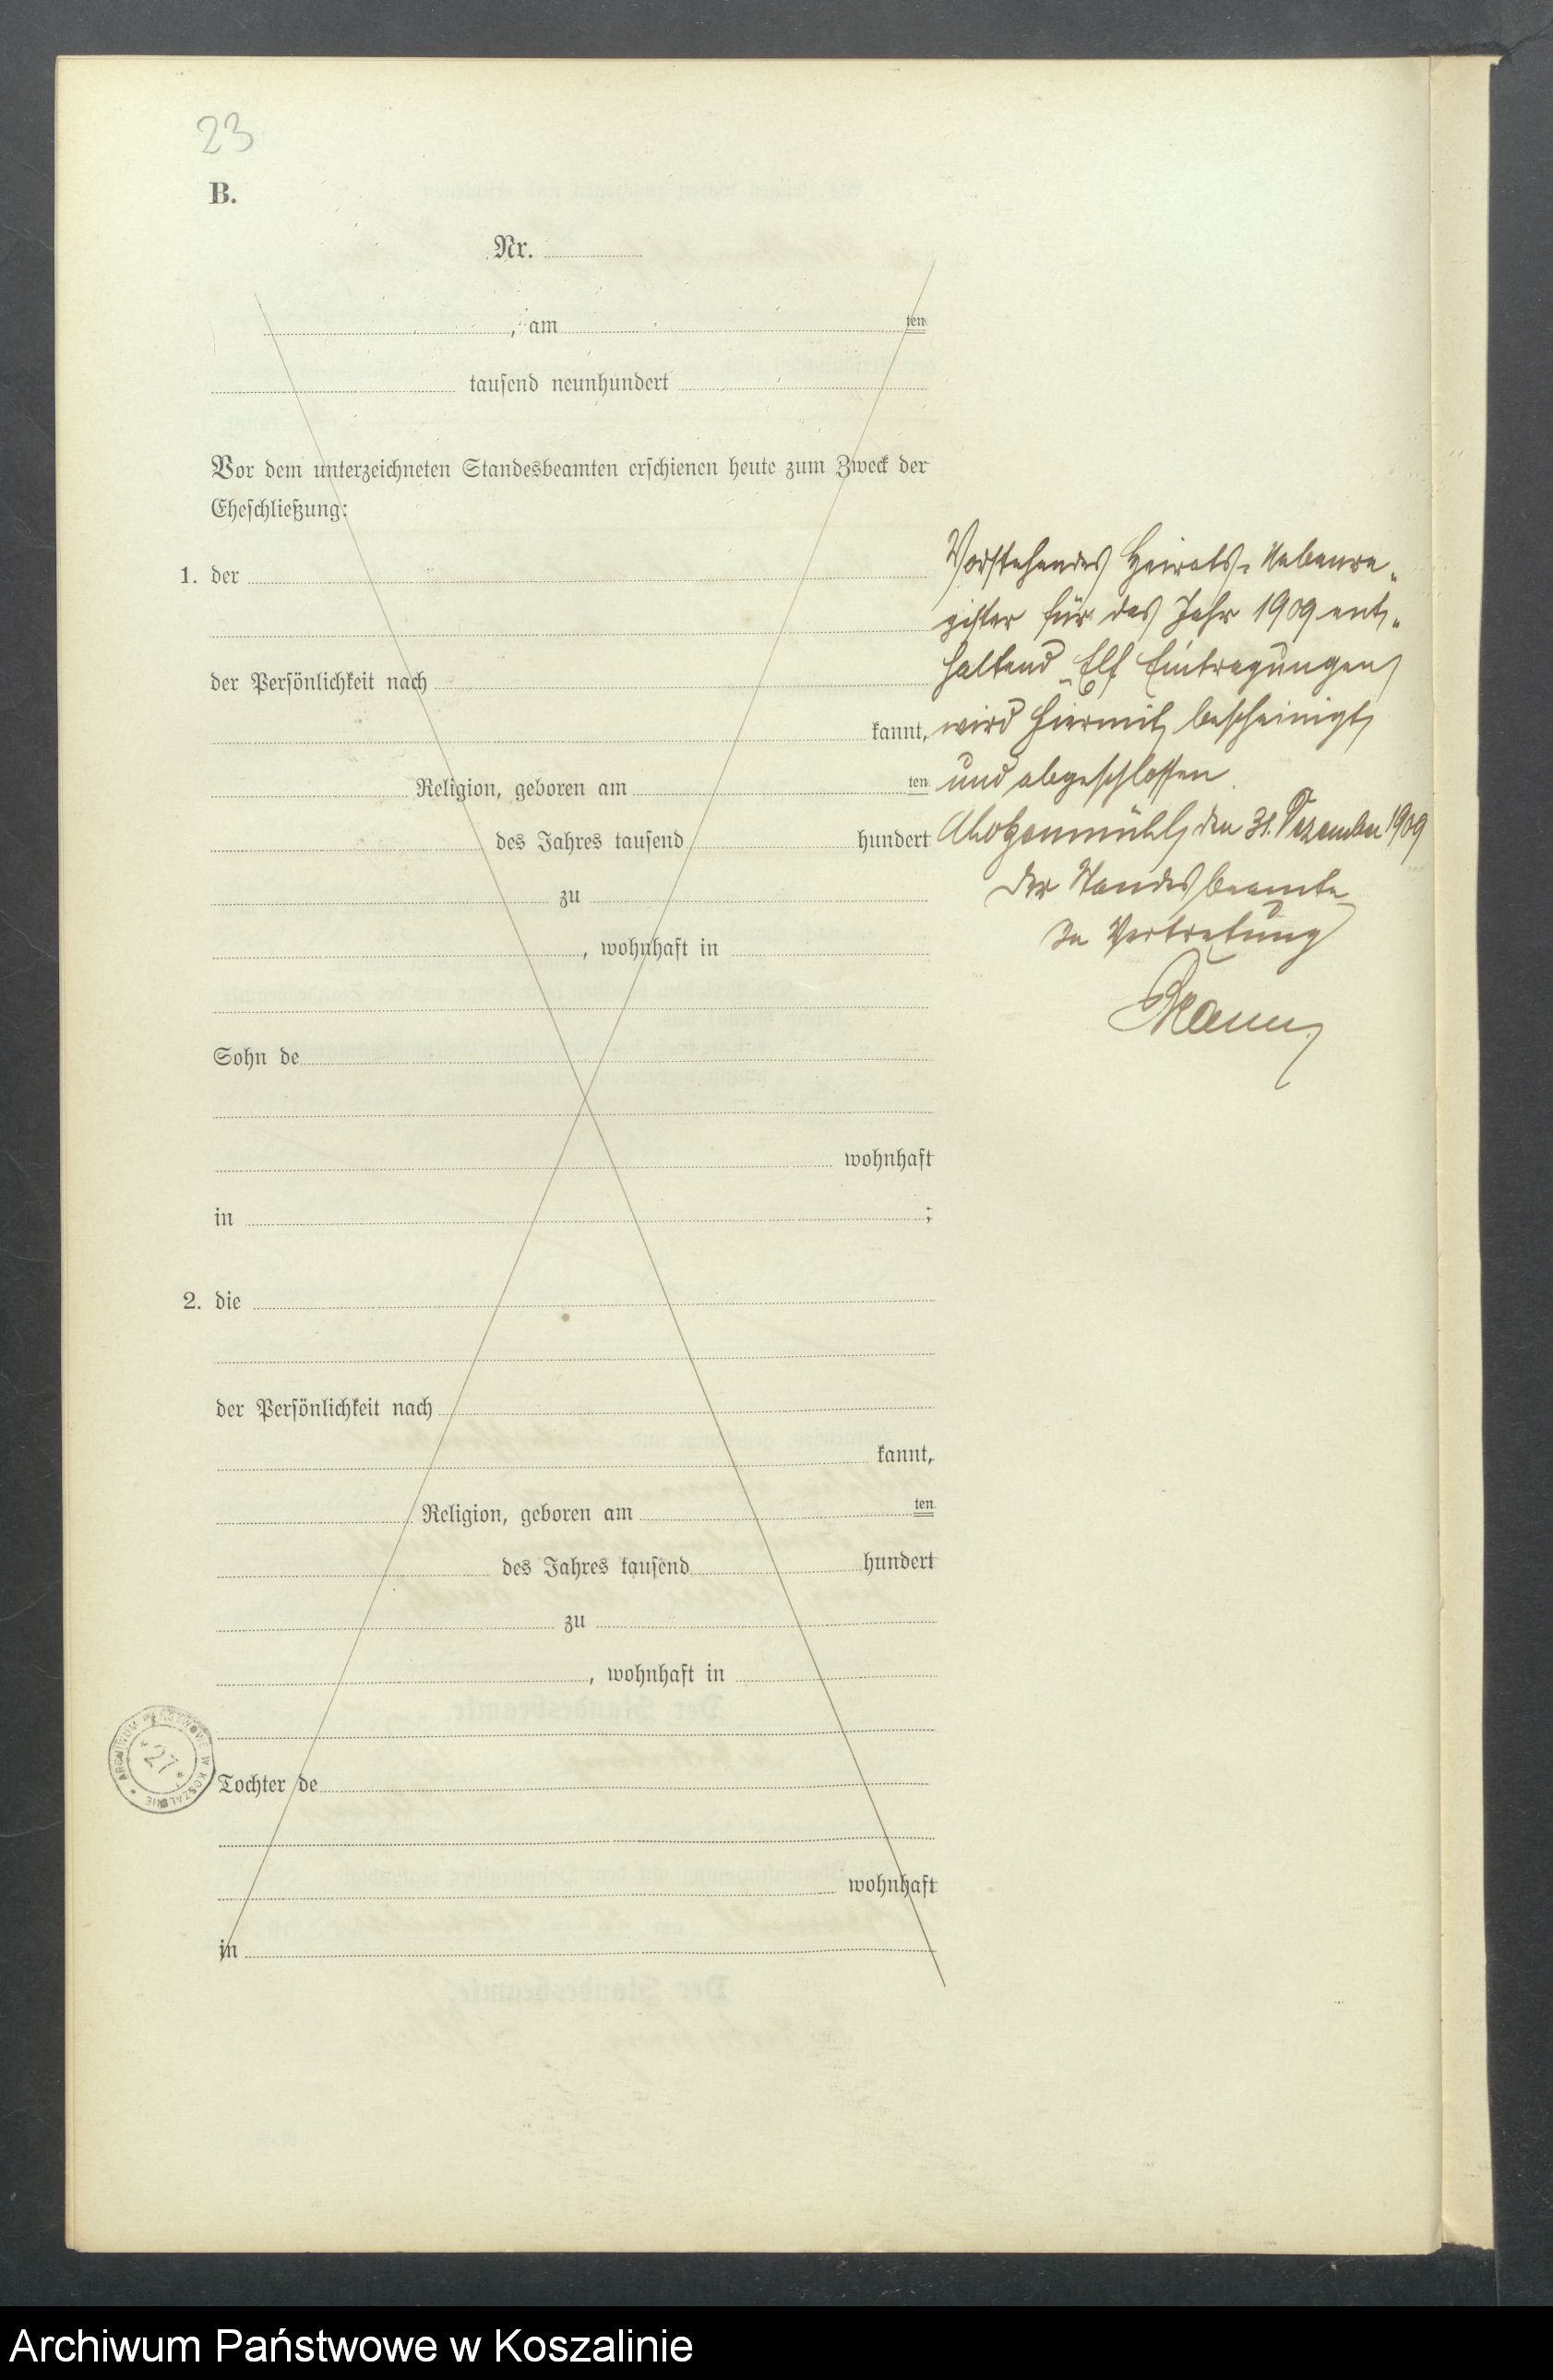 23
B.
Nr.
, am ten
tausend neunhundert
Vor dem unterzeichneten Standesbeamten erschienen heute zum Zweck der
Eheschließung:
1. der
der Persönlichkeit nach
kannt,
Religion, geboren am ten
des Jahres tausend hundert
zu
, wohnhaft in
Sohn de
wohnhaft
in ;
2. die
der Persönlichkeit nach
kannt,
Religion, geboren am ten
des Jahres tausend hundert
zu
, wohnhaft in
Tochter de
wohnhaft
in
Vorstehendes Heirats-Nebenre-
gister für das Jahr 1909 ent-
haltend Elf Eintragungen
wird hiermit bescheinigt
und abgeschlossen.
den 31. Dezember 1909
Der Standesbeamte
In Vertretung
ARCHIWUM PAŃSTWOWE W KOSZALINIE
27
Archiwum Państwowe w Koszalinie